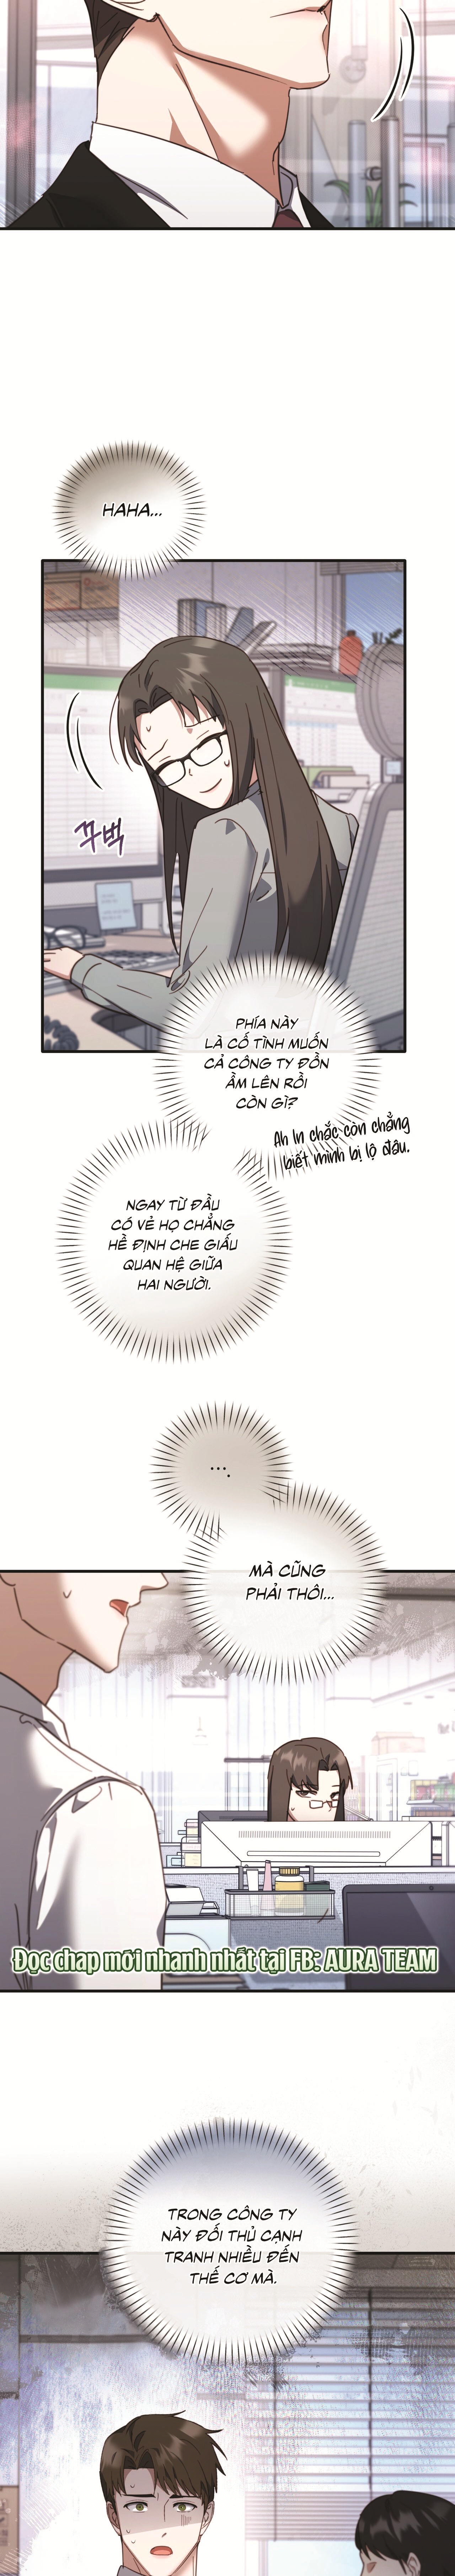 HAHA...
꾸벅
PHÍA NÀY
LÀ CỐ TÌNH MUỐN
CẢ CÔNG TY ĐỒN
ẦM LÊN RỒI
CÒN GÌ?
Ah In chắc còn chẳng
biết mình bị lộ đâu.
NGAY TỪ ĐẦU
CÓ VẺ HỌ CHẲNG
HỀ ĐỊNH CHE GIẤU
QUAN HỆ GIỮA
HAI NGƯỜI.
...
MÀ CŨNG
PHẢI THÔI...
Đọc chap mới nhanh nhất tại FB: AURA TEAM
TRONG CÔNG TY
NÀY ĐỐI THỦ CẠNH
TRANH NHIỀU ĐẾN
THẾ CƠ MÀ.